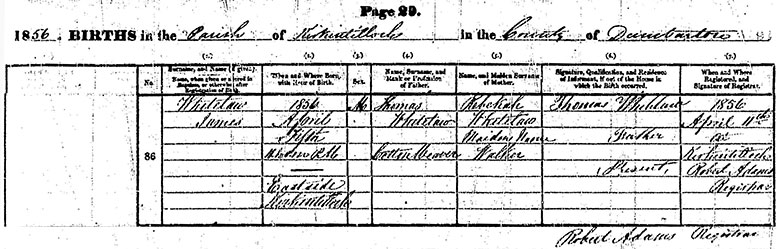 Page 29.
1856. BIRTHS in the Parish of Kirkintilloch in the County of Dumbarton
(1.) (2.) (3.) (4.) (5.) (6.) (7.)
No.
Surname, and Name (if given).
Name, when given or altered in Baptism, or otherwise, after Registration of Birth.
When and Where Born, with Hour of Birth.
Sex.
Name, Surname, and Rank or Profession of Father.
Name, and Maiden Surname of Mother.
Signature, Qualification, and Residence of Informant, if out of the House in which the Birth occurred.
When and Where Registered, and Signature of Registrar.
86
Whitelaw
James
1856
April
Fifth
PM
Eastside
Kirkintilloch
M
Thomas
Whitelaw
Cotton Weaver
Rebekah
Whitelaw
Maiden Name
Walker
Thomas Whitelaw
Father
Present
1856
April 11th
at
Kirkintilloch
Robert Adams
Registrar
Robert Adams Registrar